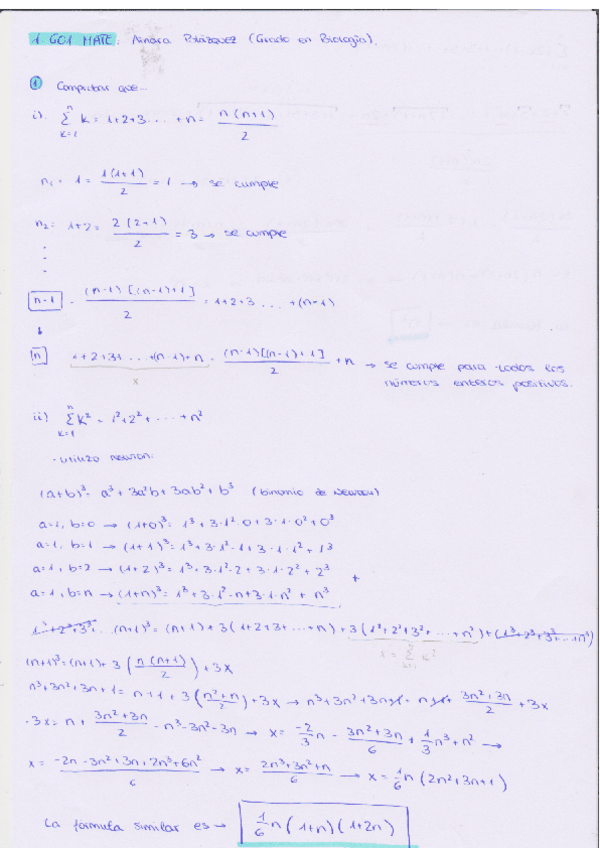 1. GO1 MATE: Ainara Blázquez (Grado en Biología).
① Comprobar que...
i). \sum_{k=1}^{n} k = 1+2+3... + n = \frac{n(n+1)}{2}
n₁ = 1 = \frac{1(1+1)}{2} = 1 → se cumple
n₂: 1+2 = \frac{2(2+1)}{2} = 3 → se cumple
n-1 · \frac{(n-1)[(n-1)+1]}{2} = 1+2+3... +(n-1)
n 1+2+3+...+(n-1)+n · \frac{(n-1)[(n-1)+1]}{2} + n → se cumple para todos los
x
números enteros positivos.
ii) \sum_{k=1}^{n} k² = 1²+2²+...+n²
- utilizo newton:
(a+b)³ = a³+3a²b+3ab²+b³ (binomio de NEWTON)
a=1, b=0 → (1+0)³ = 1³+3·1²·0+3·1·0²+0³
a=1, b=1 → (1+1)³ = 1³+3·1²·1+3·1·1²+1³
a=1, b=2 → (1+2)³ = 1³+3·1²·2+3·1·2²+2³
+
a=1, b=n → (1+n)³ = 1³+3·1²·n+3·1·n²+n³
1³+2³+3³+...(n+1)³ = (n+1)+3(1+2+3+...+n)+3(1²+2²+3²+...+n²)+(1³+2³+3³+...+n³)
(n+1)³ = (n+1)+3(\frac{n(n+1)}{2})+3x
n³+3n²+3n+1 = n+1+3(\frac{n²+n}{2})+3x → n³+3n²+3n+1 = n+1+\frac{3n²+3n}{2}+3x
-3x = n+\frac{3n²+3n}{2}-n³-3n²-3n → x = \frac{-2}{3}n-\frac{3n²+3n}{6}+\frac{1}{3}n³+n² →
x = \frac{-2n-3n²+3n+2n³+6n²}{6} → x = \frac{2n³+3n²+n}{6} → x = \frac{1}{6}n(2n²+3n+1)
La fórmula similar es → \frac{1}{6}n(1+n)(1+2n)